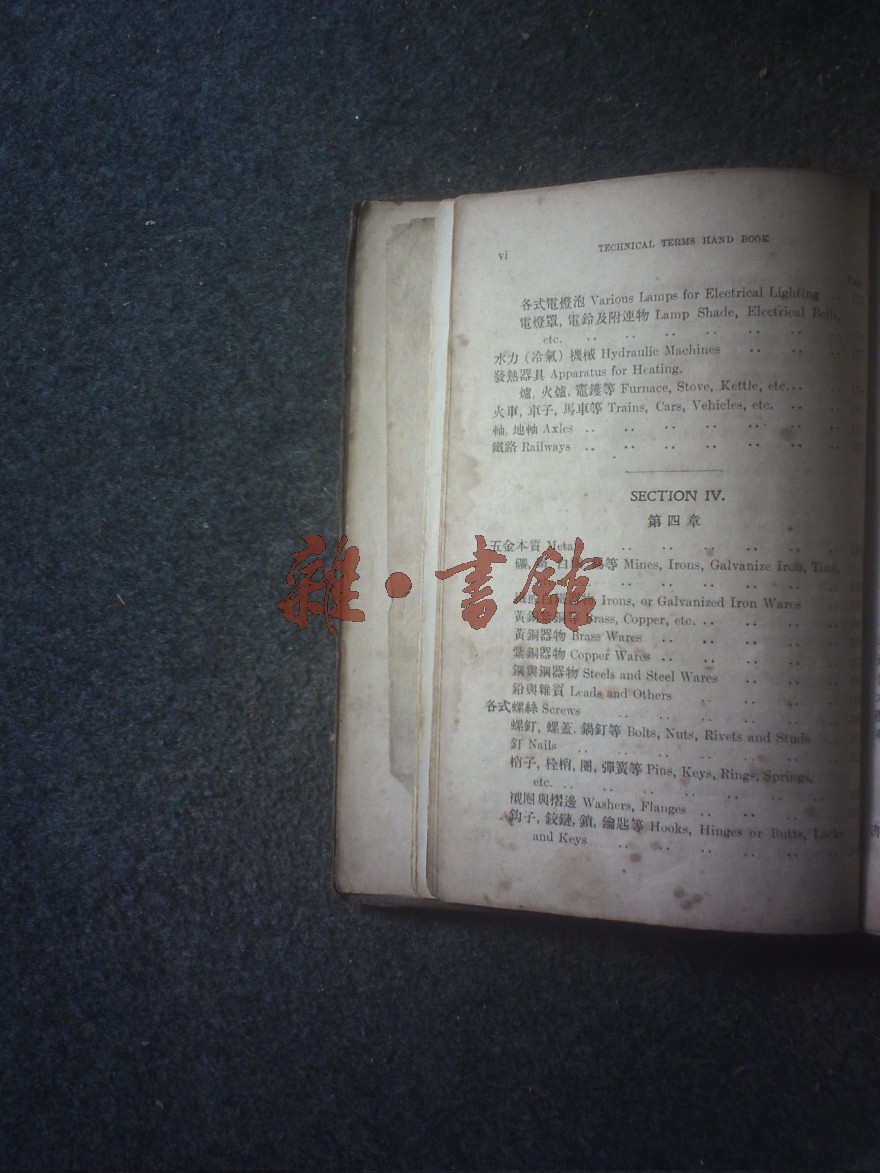 vi TECHNICAL TERMS HAND BOOK
各式電燈泡 Various Lamps for Electrical Lighting
電燈罩, 電鈴及附連物 Lamp Shade, Electrical Bells,
etc.
水力 (冷氣) 機械 Hydraulic Machines
發熱器具 Apparatus for Heating.
爐, 火爐, 竈鑊等 Furnace, Stove, Kettle, etc.
火車, 車子, 馬車等 Trains, Cars, Vehicles, etc.
軸, 地軸 Axles
鐵路 Railways
SECTION IV.
第四章
五金本質 Metals
礦, 等 Mines, Irons, Galvanize Iron, Tins,
Irons, or Galvanized Iron Wares
黃銅 Brass, Copper, etc.
黃銅器物 Brass Wares
紫銅器物 Copper Wares
鋼與鋼器物 Steels and Steel Wares
鉛與雜質 Leads and Others
各式螺絲 Screws
螺釘, 螺蓋, 鍋釘等 Bolts, Nuts, Rivets and Studs
釘 Nails
梢子, 栓梢, 圈, 彈簧等 Pins, Keys, Rings, Springs,
etc.
襯圈與摺邊 Washers, Flanges
鈎子, 鉸鏈, 鎖, 鑰匙等 Hooks, Hinges or Butts, Locks
and Keys
雜·書館